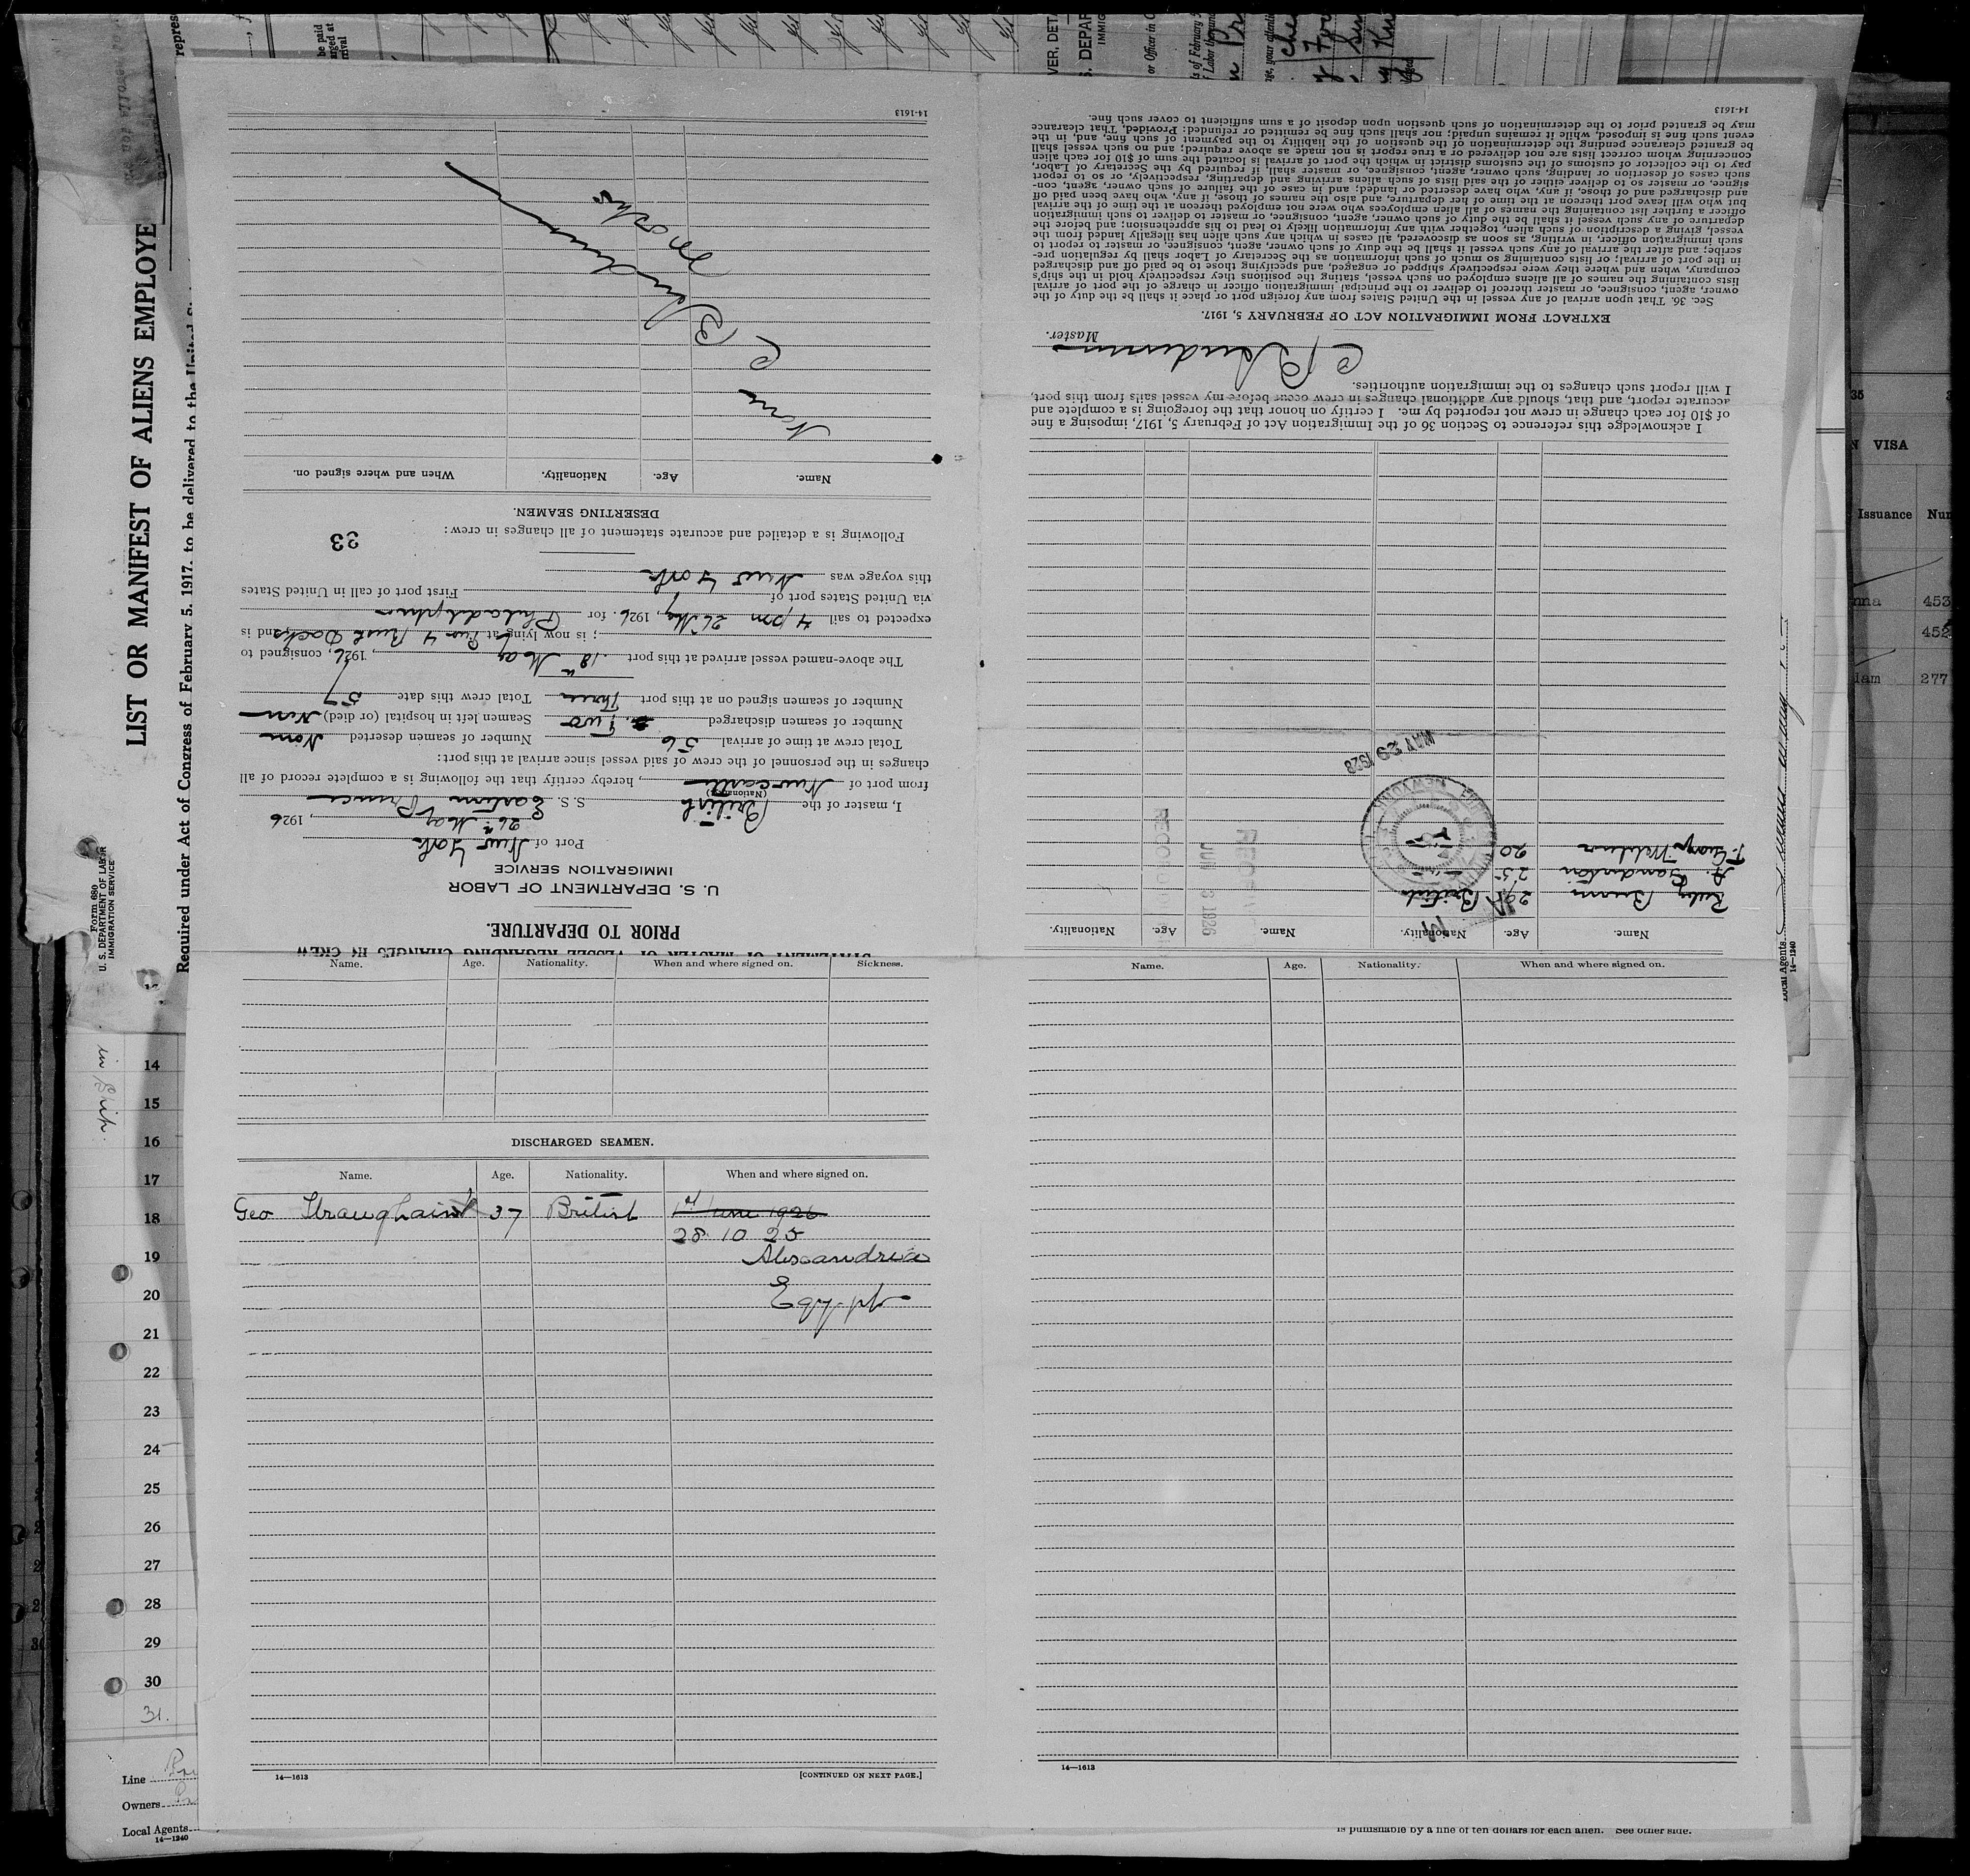 LIST OR MANIFEST OF ALIENS EMPLOYE
Required under Act of Congress of February 5, 1917, to be delivered to the United St
Form 680
U. S. DEPARTMENT OF LABOR
IMMIGRATION SERVICE
PRIOR TO DEPARTURE.
U. S. DEPARTMENT OF LABOR
IMMIGRATION SERVICE
Port of New York
26th May, 1926
I, master of the British S. S. Eastern Prince
(Nationality)
from port of Newcastle, hereby certify that the following is a complete record of all
changes in the personnel of the crew of said vessel since arrival at this port:
Total crew at time of arrival 56 Number of seamen deserted None
Number of seamen discharged Two Seamen left in hospital (or died) None
Number of seamen signed on at this port Three Total crew this date 57
The above-named vessel arrived at this port 18th May, 1926, consigned to
; is now lying at Pier 4 Bush Docks, and is
expected to sail 4 pm 26 May, 1926. for Philadelphia
via United States port of First port of call in United States
this voyage was New York
Following is a detailed and accurate statement of all changes in crew:
33
DESERTING SEAMEN.
Name. Age. Nationality. When and where signed on.
None
Master
14-1613
Name. Age. Nationality. Name. Age. Nationality.
Brown 29 British
A. Sanderson 25
T. George 20
MAY 29 1926
JUN 3 1926
I acknowledge this reference to Section 36 of the Immigration Act of February 5, 1917, imposing a fine
of $10 for each change in crew not reported by me. I certify on honor that the foregoing is a complete and
accurate report, and that, should any additional changes in crew occur before my vessel sails from this port,
I will report such changes to the immigration authorities.
Master.
EXTRACT FROM IMMIGRATION ACT OF FEBRUARY 5, 1917.
Sec. 36. That upon arrival of any vessel in the United States from any foreign port or place it shall be the duty of the
owner, agent, consignee, or master thereof to deliver to the principal immigration officer in charge of the port of arrival
lists containing the names of all aliens employed on such vessel, stating the positions they respectively hold in the ship's
company, when and where they were respectively shipped or engaged, and specifying those to be paid off and discharged
in the port of arrival; or lists containing so much of such information as the Secretary of Labor shall by regulation pre-
scribe; and after the arrival of any such vessel it shall be the duty of such owner, agent, consignee, or master to report to
such immigration officer, in writing, as soon as discovered, all cases in which any such alien has illegally landed from the
vessel, giving a description of such alien, together with any information likely to lead to his apprehension; and before the
departure of any such vessel it shall be the duty of such owner, agent, consignee, or master to deliver to such immigration
officer a further list containing the names of all alien employees who were not employed thereon at the time of the arrival
but who will leave port thereon at the time of her departure, and also the names of those, if any, who have been paid off
and discharged and of those, if any, who have deserted or landed; and in case of the failure of such owner, agent, con-
signee, or master so to deliver either of the said lists of such aliens arriving and departing, respectively, or so to report
such cases of desertion or landing, such owner, agent, consignee, or master, shall, if required by the Secretary of Labor,
pay to the collector of customs of the customs district in which the port of arrival is located the sum of $10 for each alien
concerning whom correct lists are not delivered or a true report is not made as above required; and no such vessel shall
be granted clearance pending the determination of the question of the liability to the payment of such fine, and, in the
event such fine is imposed, while it remains unpaid; nor shall such fine be remitted or refunded: Provided, That clearance
may be granted prior to the determination of such question upon deposit of a sum sufficient to cover such fine.
14-1613
Name. Age. Nationality. When and where signed on. Sickness.
DISCHARGED SEAMEN.
Name. Age. Nationality. When and where signed on.
Geo 37 British 1st June 1926
28 10 25
Alexandria
Egypt
14—1613
[CONTINUED ON NEXT PAGE.]
Name. Age. Nationality. When and where signed on.
14—1613
in Ship.
14
15
16
17
18
19
20
21
22
23
24
25
26
27
28
29
30
31.
Line
Owners
Local Agents
14—1240
VISA
Issuance
453
452
277
Local Agents
14—1240
is punishable by a fine of ten dollars for each alien. See other side.